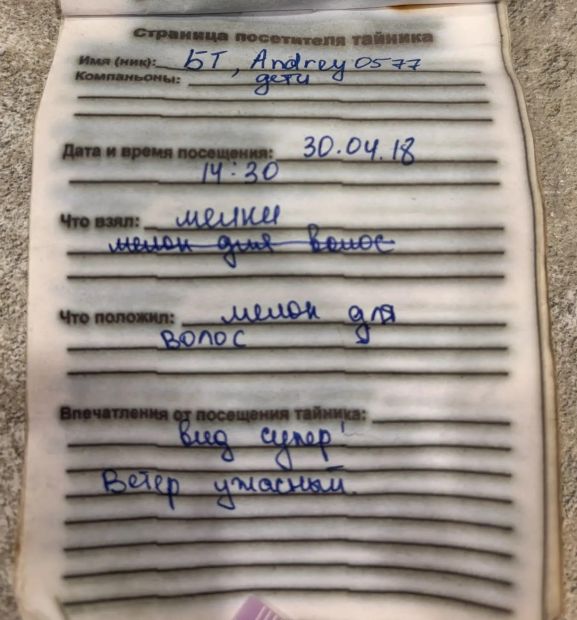 Страница посетителя тайника
Имя (ник): БТ, Andrey0577
Компаньоны: дети
Дата и время посещения: 30.04.18
14:30
Что взял: мелки
мелок для волос
Что положил: мелок для
волос
Впечатления от посещения тайника:
вид супер!
Ветер ужасный.